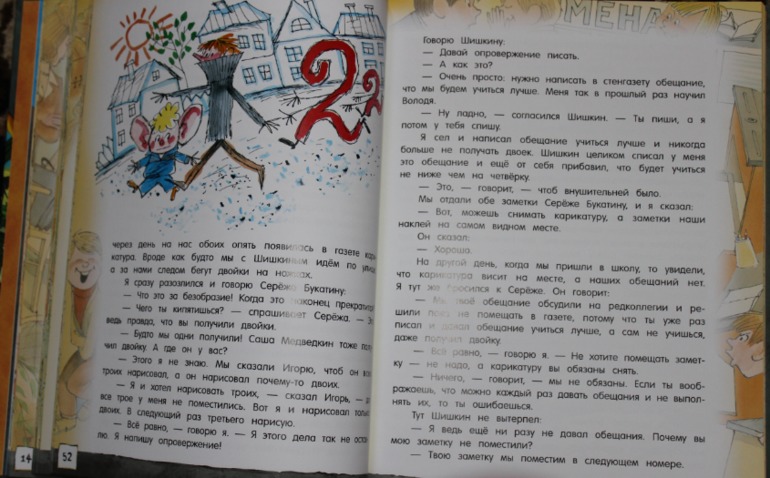 2 2
через день на нас обоих опять появилась в газете кари-
катура. Вроде как будто мы с Шишкиным идём по улице,
а за нами следом бегут двойки на ножках.
Я сразу разозлился и говорю Серёже Букатину:
— Что это за безобразие! Когда это наконец прекратится
— Чего ты кипятишься? — спрашивает Серёжа. —
ведь правда, что вы получили двойки.
— Будто мы одни получили! Саша Медведкин тоже полу-
чил двойку. А где он у вас?
— Этого я не знаю. Мы сказали Игорю, чтоб он всех
троих нарисовал, а он нарисовал почему-то двоих.
— Я и хотел нарисовать троих, — сказал Игорь, —
все трое у меня не поместились. Вот я и нарисовал только
двоих. В следующий раз третьего нарисую.
— Всё равно, — говорю я. — Я этого дела так не остав-
лю. Я напишу опровержение!
14 52
МЕНА
Говорю Шишкину:
— Давай опровержение писать.
— А как это?
— Очень просто: нужно написать в стенгазету обещание,
что мы будем учиться лучше. Меня так в прошлый раз научил
Володя.
— Ну ладно, — согласился Шишкин. — Ты пиши, а я
потом у тебя спишу.
Я сел и написал обещание учиться лучше и никогда
больше не получать двоек. Шишкин целиком списал у меня
это обещание и ещё от себя прибавил, что будет учиться
не ниже чем на четвёрку.
— Это, — говорит, — чтоб внушительней было.
Мы отдали обе заметки Серёже Букатину, и я сказал:
— Вот, можешь снимать карикатуру, а заметки наши
наклей на самом видном месте.
Он сказал:
— Хорошо.
На другой день, когда мы пришли в школу, то увидели,
что карикатура висит на месте, а наших обещаний нет.
Я тут же бросился к Серёже. Он говорит:
— Мы твоё обещание обсудили на редколлегии и ре-
шили пока не помещать в газете, потому что ты уже раз
писал и давал обещание учиться лучше, а сам не учишься,
даже получил двойку.
— Всё равно, — говорю я. — Не хотите помещать замет-
ку — не надо, а карикатуру вы обязаны снять.
— Ничего, — говорит, — мы не обязаны. Если ты вооб-
ражаешь, что можно каждый раз давать обещания и не выпол-
нять их, то ты ошибаешься.
Тут Шишкин не вытерпел:
— Я ведь ещё ни разу не давал обещания. Почему вы
мою заметку не поместили?
— Твою заметку мы поместим в следующем номере.